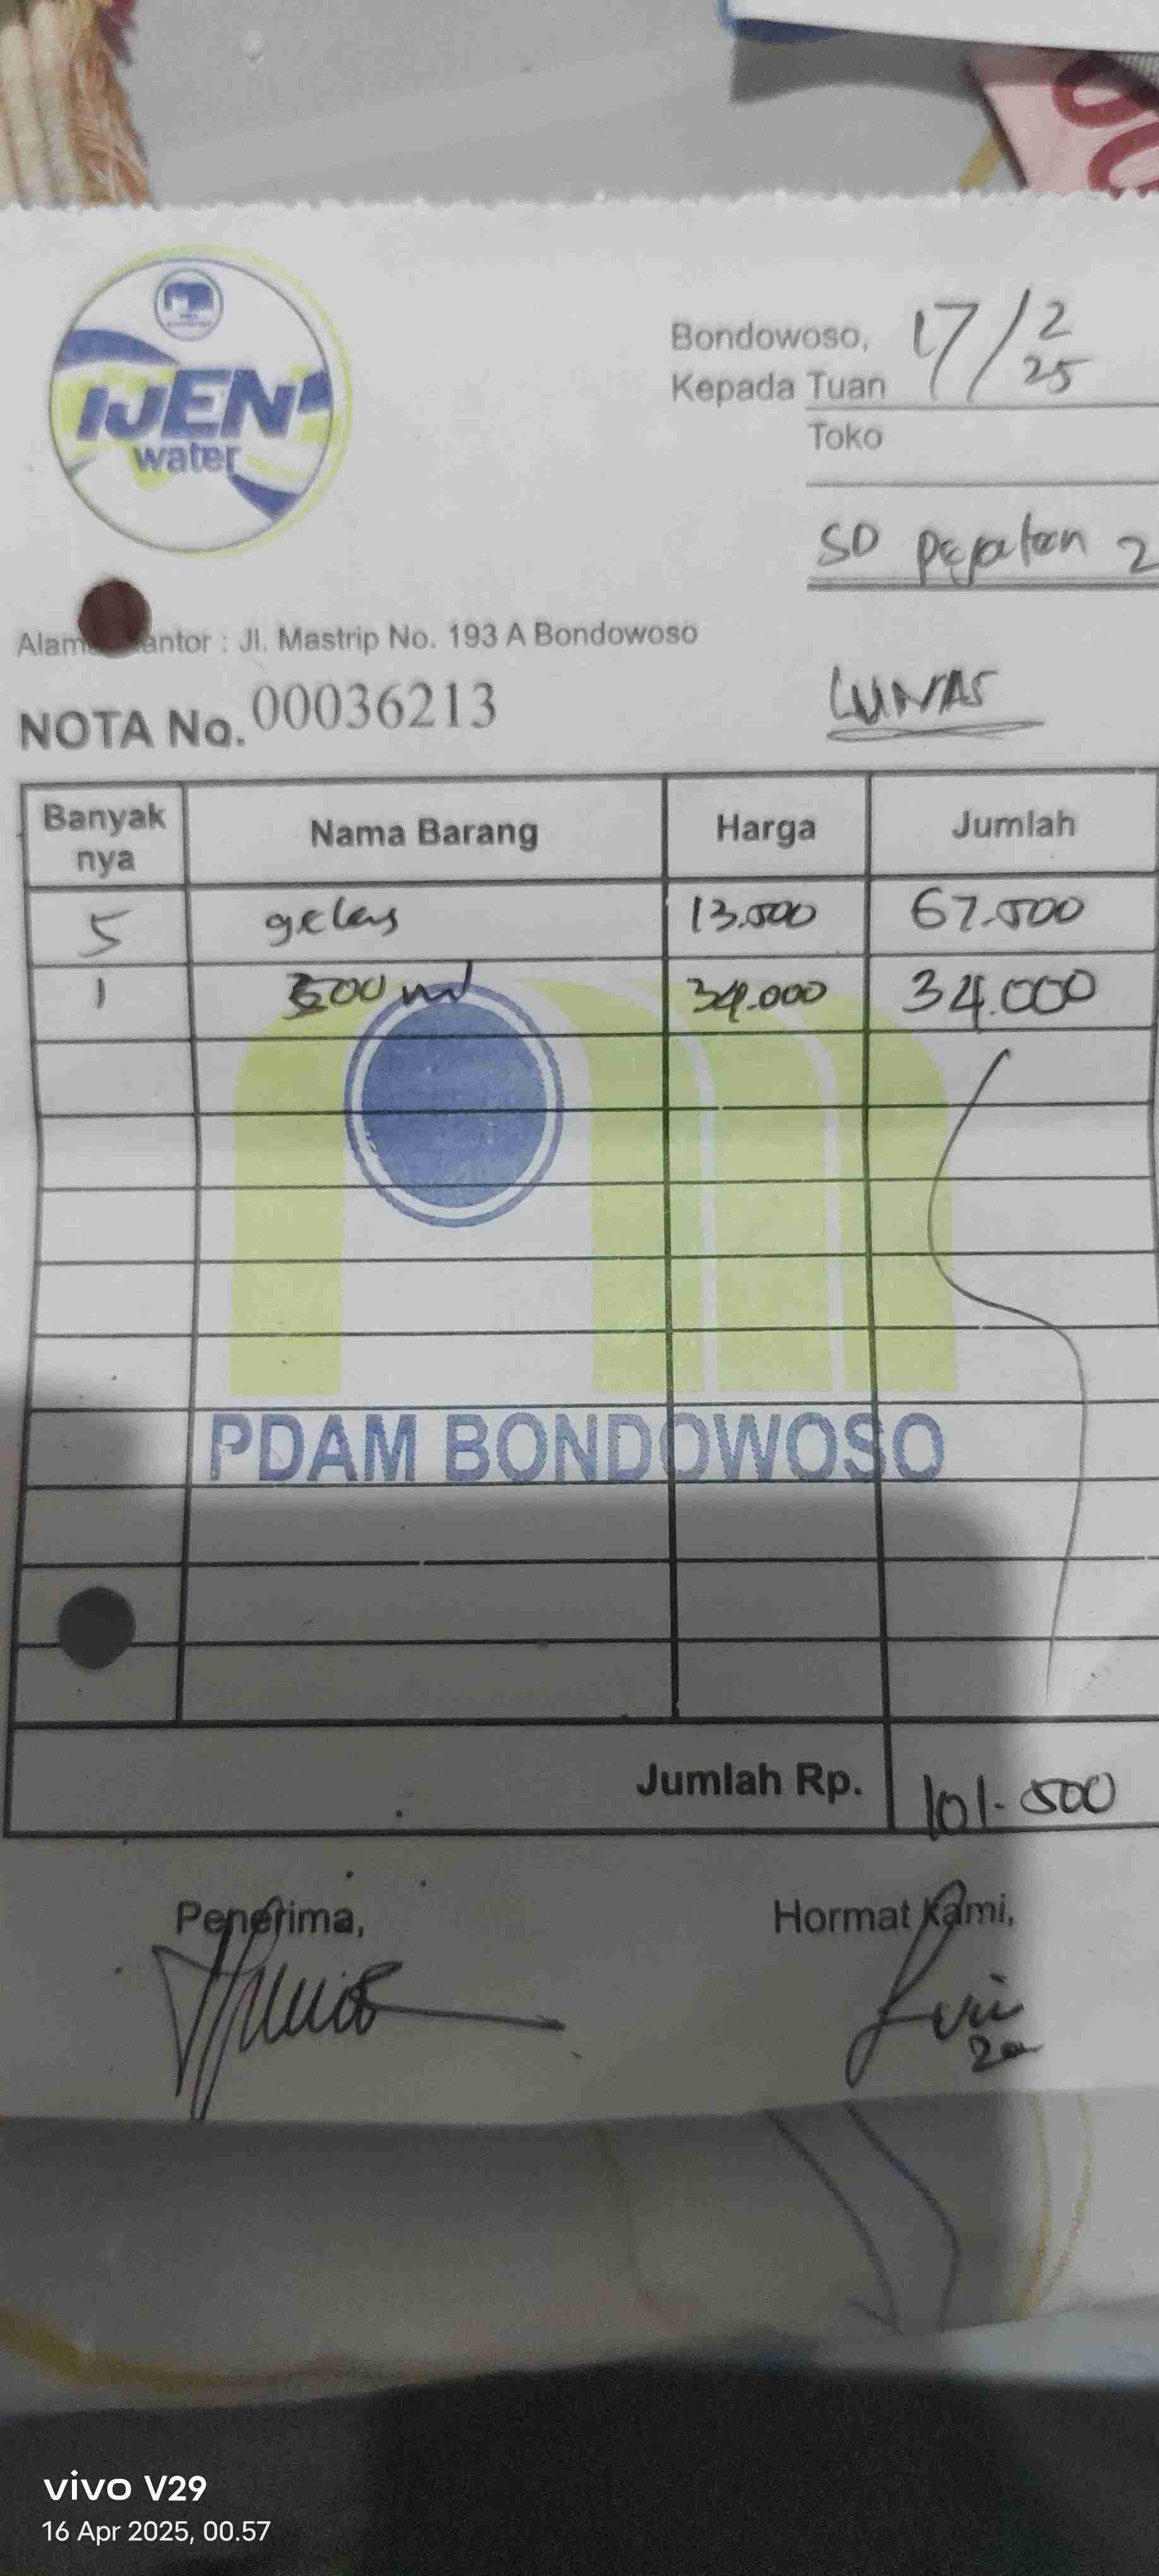 IJEN
water
Bondowoso, 17/2 25
Kepada Tuan
Toko
SD Pejaten 2
Kantor : Jl. Mastrip No. 193 A Bondowoso
NOTA No. 00036213
LUNAS
Banyak nya Nama Barang Harga Jumlah
5 gelas 13.500 67.500
1 ml 34.000 34.000
PDAM BONDOWOSO
Jumlah Rp. 101.500
Penerima, Hormat Kami,
vivo V29
16 Apr 2025, 00.57